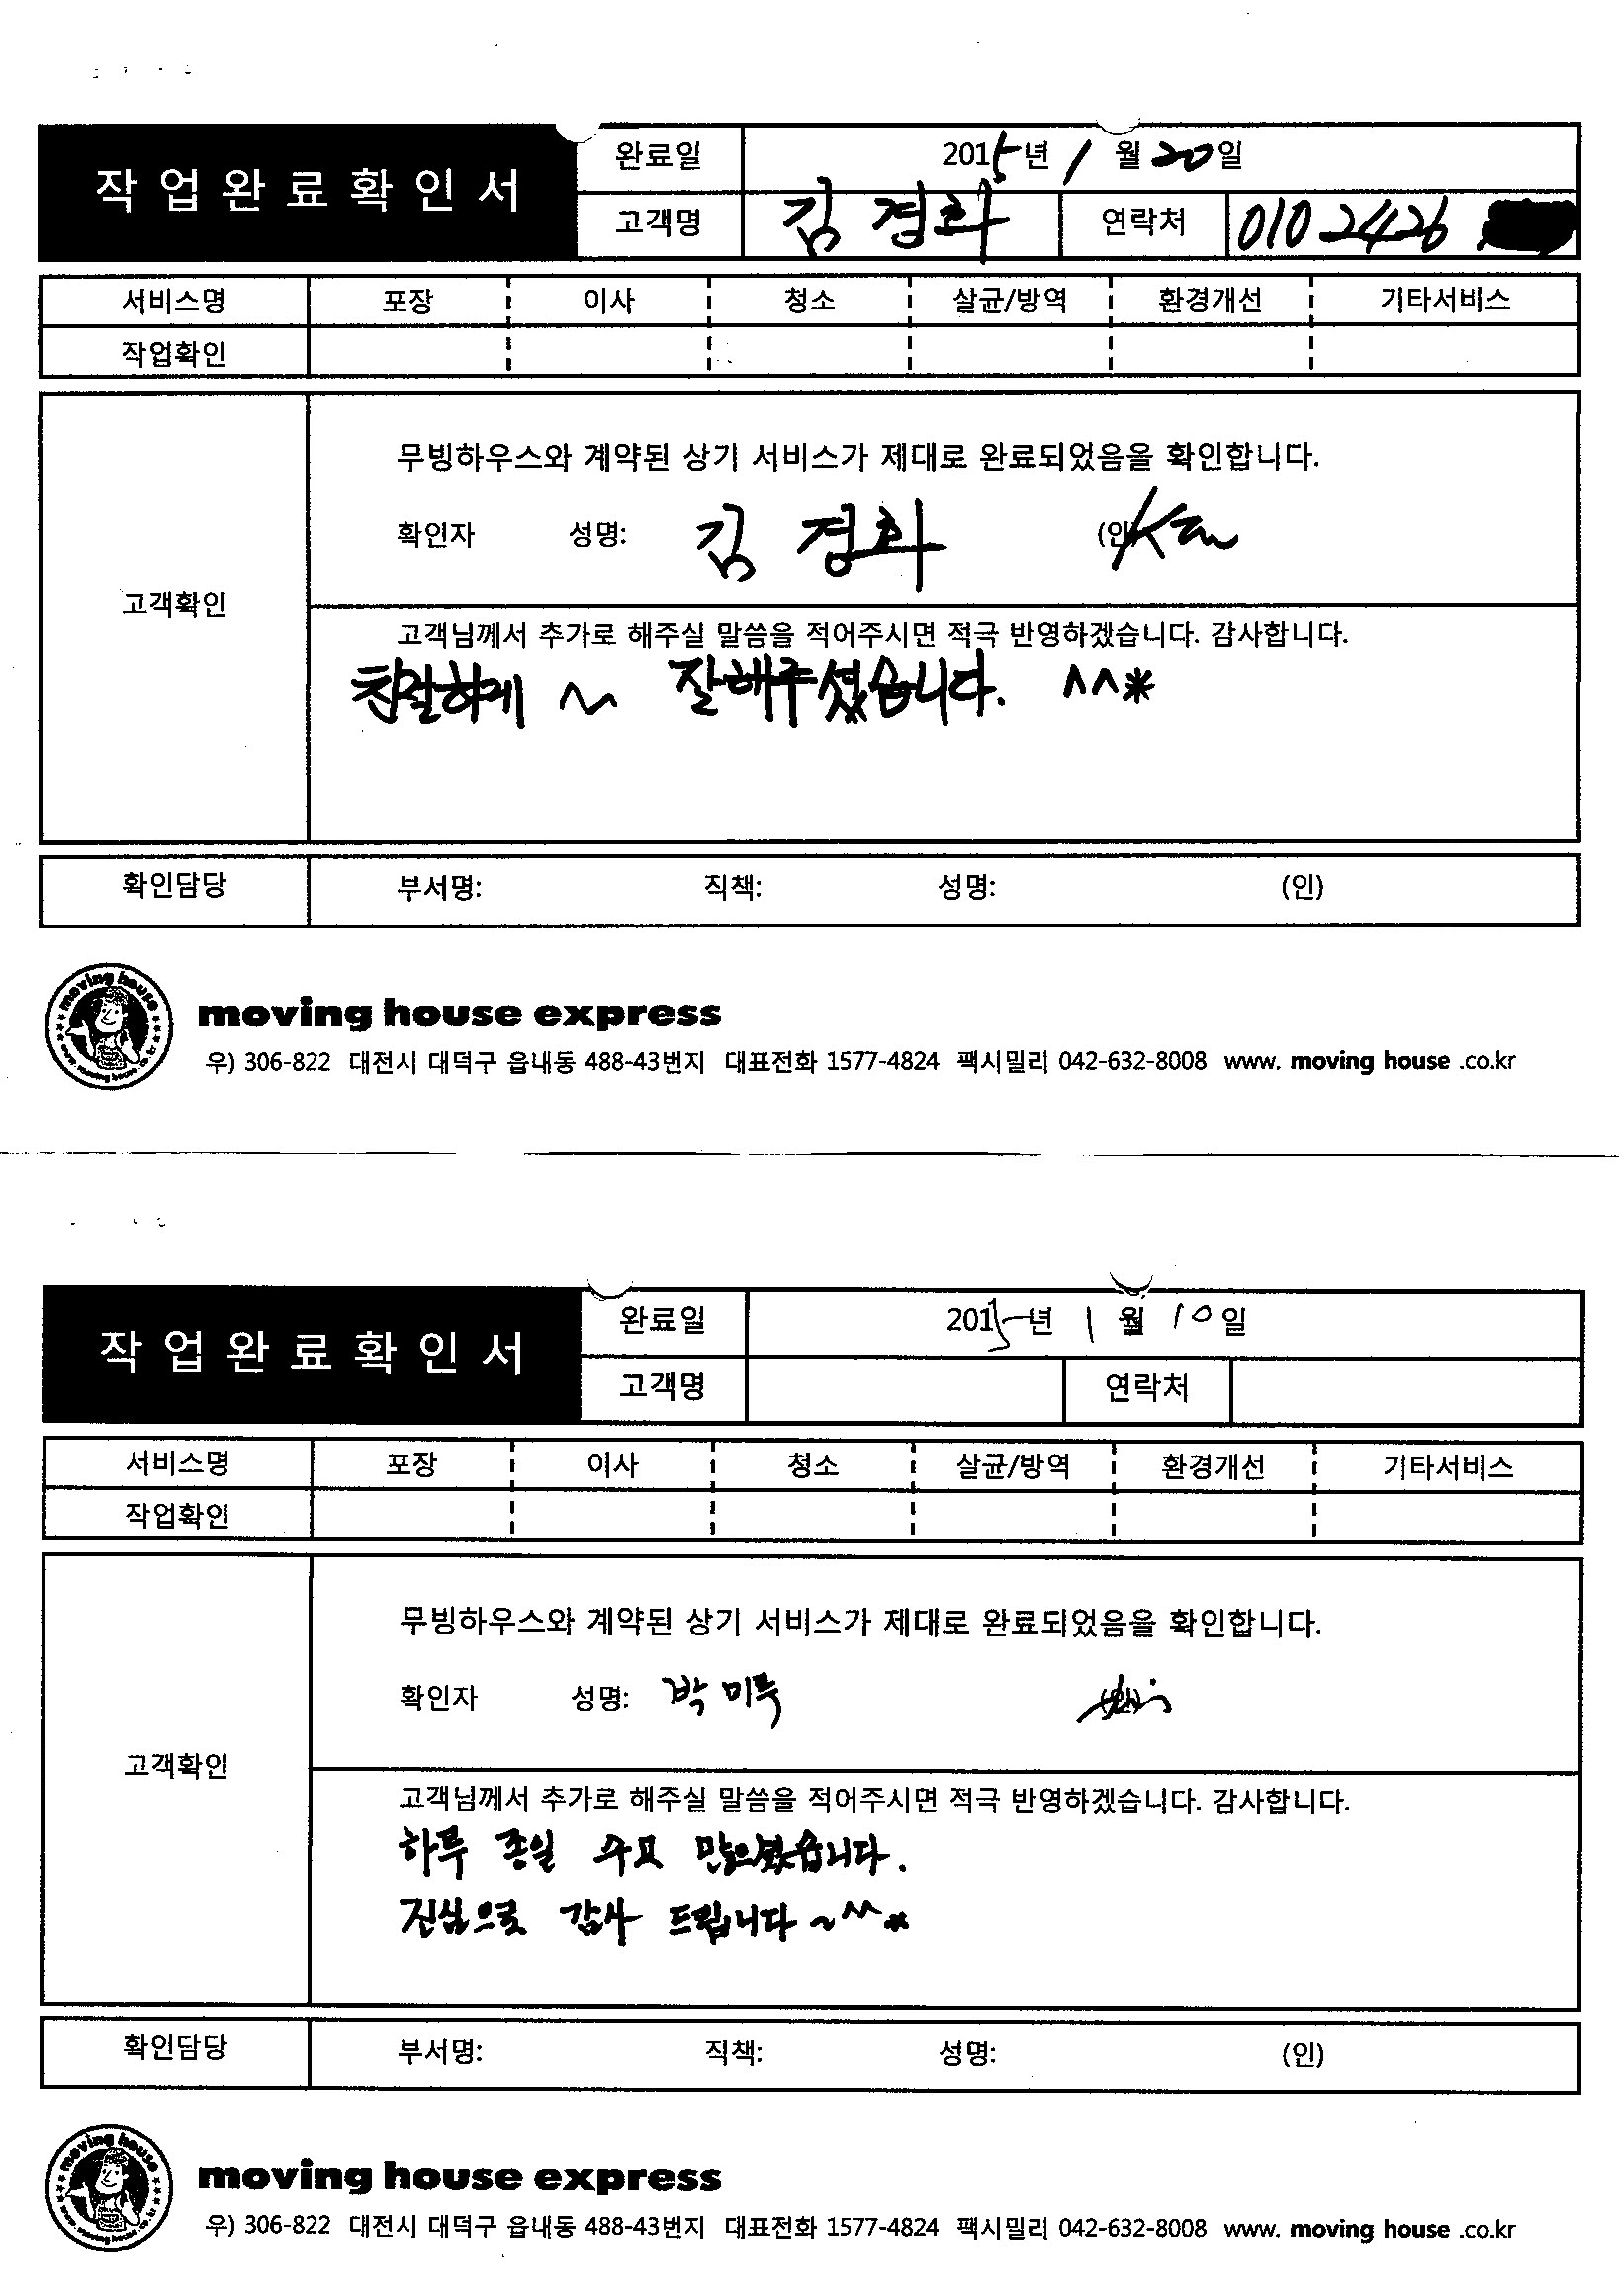 작업완료확인서
완료일 2015년 1월 20일
고객명 김경화 연락처 010 2426
서비스명 포장 이사 청소 살균/방역 환경개선 기타서비스
작업확인
고객확인
무빙하우스와 계약된 상기 서비스가 제대로 완료되었음을 확인합니다.
확인자 성명: 김경화 (인)
고객님께서 추가로 해주실 말씀을 적어주시면 적극 반영하겠습니다. 감사합니다.
친절하게 ~ 잘해주셨습니다. ^^*
확인담당 부서명: 직책: 성명: (인)
moving house
moving house express
우) 306-822 대전시 대덕구 읍내동 488-43번지 대표전화 1577-4824 팩시밀리 042-632-8008 www. moving house .co.kr
작업완료확인서
완료일 2015년 1월 10일
고객명 연락처
서비스명 포장 이사 청소 살균/방역 환경개선 기타서비스
작업확인
고객확인
무빙하우스와 계약된 상기 서비스가 제대로 완료되었음을 확인합니다.
확인자 성명: 박미루 (인)
고객님께서 추가로 해주실 말씀을 적어주시면 적극 반영하겠습니다. 감사합니다.
하루 종일 수고 많으셨습니다.
진심으로 감사 드립니다 ~^^*
확인담당 부서명: 직책: 성명: (인)
moving house
moving house express
우) 306-822 대전시 대덕구 읍내동 488-43번지 대표전화 1577-4824 팩시밀리 042-632-8008 www. moving house .co.kr